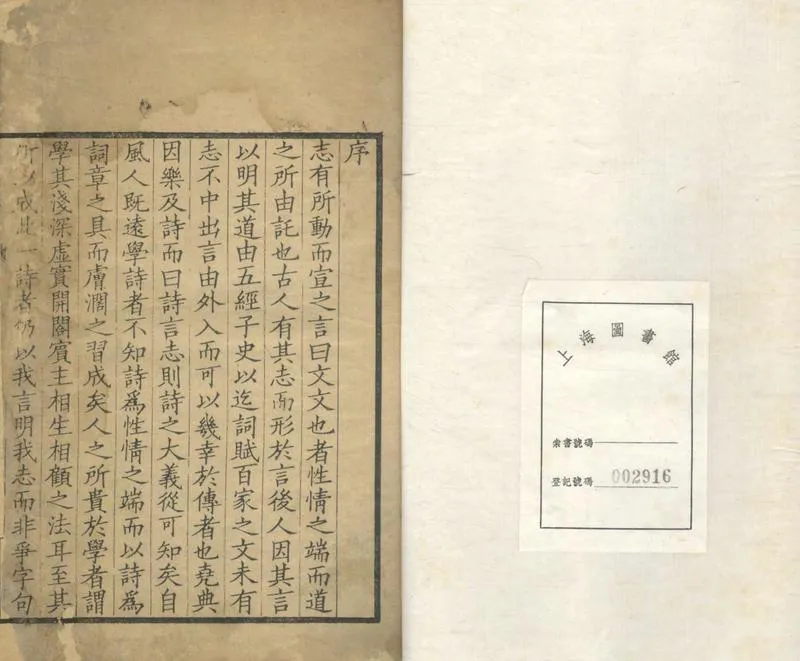 序
志有所動而宣之言曰文文也者性情之端而道
之所由託也古人有其志而形於言後人因其言
以明其道由五經子史以迄詞賦百家之文未有
志不中出言由外入而可以幾幸於傳者也堯典
因樂及詩而曰詩言志則詩之大義從可知矣自
風人既遠學詩者不知詩爲性情之端而以詩爲
詞章之具而膚濶之習成矣人之所貴於學者謂
學其淺深虛實開闔賓主相生相顧之法耳至其
所以成此一詩者仍以我言明我志而非爭字句
上海圖書館
索書號碼
登記號碼 002916